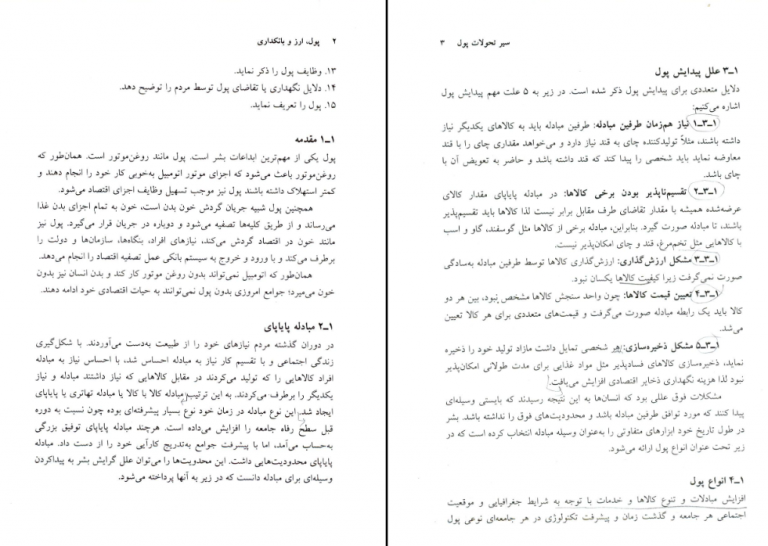 ۲ پول، ارز و بانکداری
۱۳. وظایف پول را ذکر نماید.
۱۴. دلایل نگهداری یا تقاضای پول توسط مردم را توضیح دهد.
۱۵. پول را تعریف نماید.
۱ـ۱ مقدمه
پول یکی از مهم‌ترین ابداعات بشر است. پول مانند روغن‌موتور است. همان‌طور که
روغن‌موتور باعث می‌شود که اجزای موتور اتومبیل به‌خوبی کار خود را انجام دهند و
کمتر استهلاک داشته باشند پول نیز موجب تسهیل وظایف اجزای اقتصاد می‌شود.
همچنین پول شبیه جریان گردش خون بدن است، خون به تمام اجزای بدن غذا
می‌رساند و از طریق کلیه‌ها تصفیه می‌شود و دوباره در جریان قرار می‌گیرد. پول نیز
مانند خون در اقتصاد گردش می‌کند، نیازهای افراد، بنگاه‌ها، سازمان‌ها و دولت را
برطرف می‌کند و با ورود و خروج به سیستم بانکی عمل تصفیه اقتصاد را انجام می‌دهد.
همان‌طور که اتومبیل نمی‌تواند بدون روغن موتور کار کند و بدن انسان نیز بدون
خون می‌میرد؛ جوامع امروزی بدون پول نمی‌توانند به حیات اقتصادی خود ادامه دهند.
۱ـ۲ مبادله پایاپای
در دوران گذشته مردم نیازهای خود را از طبیعت به‌دست می‌آوردند. با شکل‌گیری
زندگی اجتماعی و با تقسیم کار نیاز به مبادله احساس شد، با احساس نیاز به مبادله
افراد کالاهایی را که تولید می‌کردند در مقابل کالاهایی که نیاز داشتند مبادله و نیاز
یکدیگر را برطرف می‌کردند. به این ترتیب مبادله کالا با کالا یا مبادله تهاتری یا پایاپای
ایجاد شد. این نوع مبادله در زمان خود نوع بسیار پیشرفته‌ای بوده چون نسبت به دوره
قبل سطح رفاه جامعه را افزایش می‌داده است. هرچند مبادله پایاپای توفیق بزرگی
به‌حساب می‌آمد، اما با پیشرفت جوامع به‌تدریج کارآیی خود را از دست داد. مبادله
پایاپای محدودیت‌هایی داشت. این محدویت‌ها را می‌توان علل گرایش بشر به پیداکردن
وسیله‌ای برای مبادله دانست که در زیر به آنها پرداخته می‌شود.
سیر تحولات پول ۳
۱ـ۳ علل پیدایش پول
دلایل متعددی برای پیدایش پول ذکر شده است. در زیر به ۵ علت مهم پیدایش پول
اشاره می‌کنیم:
۱ـ۳ـ۱ نیاز هم‌زمان طرفین مبادله: طرفین مبادله باید به کالاهای یکدیگر نیاز
داشته باشند، مثلاً تولیدکننده چای به قند نیاز دارد و می‌خواهد مقداری چای را با قند
معاوضه نماید باید شخصی را پیدا کند که قند داشته باشد و حاضر به تعویض آن با
چای باشد.
۱ـ۳ـ۲ تقسیم‌ناپذیر بودن برخی کالاها: در مبادله پایاپای مقدار کالای
عرضه‌شده همیشه با مقدار تقاضای طرف مقابل برابر نیست لذا کالاها باید تقسیم‌پذیر
باشند، تا مبادله صورت گیرد. بنابراین، مبادله برخی از کالاها مثل گوسفند، گاو و اسب
با کالاهایی مثل تخم‌مرغ، قند و چای امکان‌پذیر نیست.
۱ـ۳ـ۳ مشکل ارزش‌گذاری: ارزش‌گذاری کالاها توسط طرفین مبادله به‌سادگی
صورت نمی‌گرفت زیرا کیفیت کالاها یکسان نبود.
۱ـ۳ـ۴ تعیین قیمت کالاها: چون واحد سنجش کالاها مشخص نبود، بین هر دو
کالا باید یک رابطه مبادله صورت می‌گرفت و قیمت‌های متعددی برای هر کالا تعیین
می‌شد.
۱ـ۳ـ۵ مشکل ذخیره‌سازی: هر شخصی تمایل داشت مازاد تولید خود را ذخیره
نماید، ذخیره‌سازی کالاهای فسادپذیر مثل مواد غذایی برای مدت طولانی امکان‌پذیر
نبود لذا هزینه نگهداری ذخایر اقتصادی افزایش می‌یافت.
مشکلات فوق عللی بود که انسان‌ها به این نتیجه رسیدند که بایستی وسیله‌ای
پیدا کنند که مورد توافق طرفین مبادله باشد و محدودیت‌های فوق را نداشته باشد. بشر
در طول تاریخ خود ابزارهای متفاوتی را به‌عنوان وسیله مبادله انتخاب کرده است که در
زیر تحت عنوان انواع پول ارائه می‌شود.
۱ـ۴ انواع پول
افزایش مبادلات و تنوع کالاها و خدمات با توجه به شرایط جغرافیایی و موقعیت
اجتماعی هر جامعه و گذشت زمان و پیشرفت تکنولوژی در هر جامعه‌ای نوعی پول